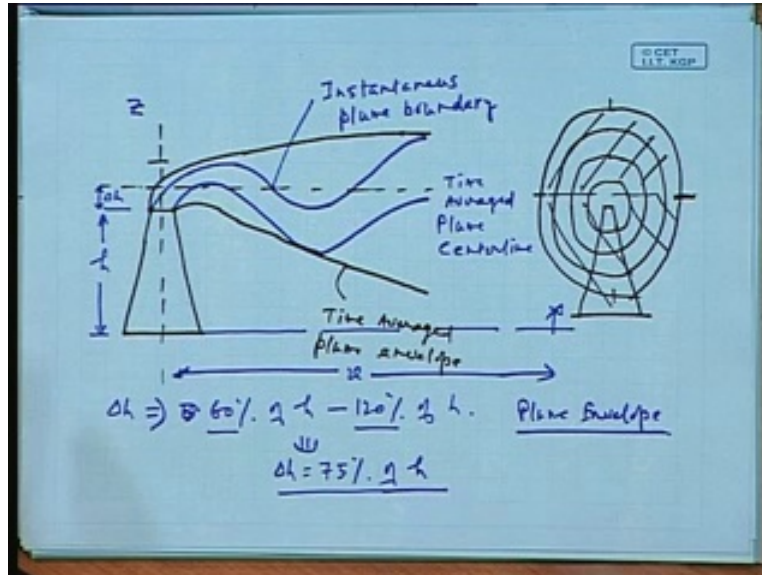 © CET
I.I.T. KGP
Z
Instantaneous
plume boundary
Δh
Time
Averaged
Plume
Centerline
h
Time Averaged
plume envelope
x
Δh ⇒ 60% of h – 120% of h.
Plume Envelope
Δh = 75% of h